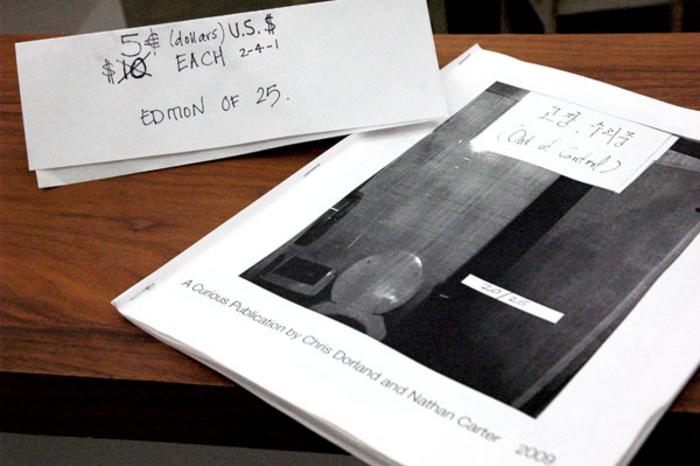 5¢ (dollars) U.S. $
$10 EACH 2-4-1
EDITION OF 25.
고장. 수리중
(Out of Control)
20/25
A Curious Publication by Chris Dorland and Nathan Carter 2009